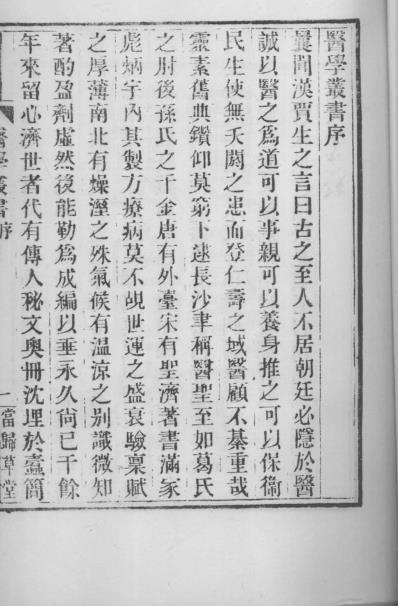 醫學叢書序
曩聞漢賈生之言曰古之至人不居朝廷必隱於醫
誠以醫之爲道可以事親可以養身推之可以保衞
民生使無夭閼之患而登仁壽之域醫顧不綦重哉
靈素舊典鑽仰莫窮下逮長沙聿稱醫聖至如葛氏
之肘後孫氏之千金唐有外臺宋有聖濟著書滿家
彪炳宇內其製方療病莫不覘世運之盛衰驗稟賦
之厚薄南北有燥溼之殊氣候有温涼之别識微知
著酌盈劑虛然後能勒爲成編以垂永久尙已千餘
年來留心濟世者代有傳人秘文奧冊沈埋於蠹簡
醫學叢書序
一
當歸草堂